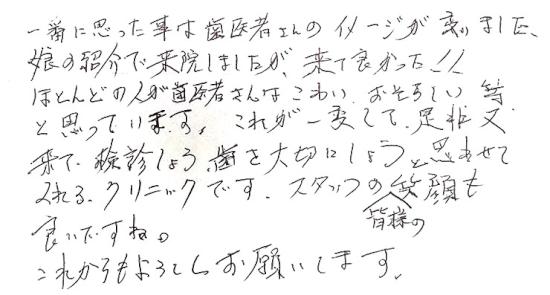 一番に思った事は歯医者さんのイメージが変りました、
娘の紹介で来院しましたが、来て良かった!!
ほとんどの人が歯医者さんはこわい、おそろしい 等
と思っています。これが一変して、是非又
来て、検診しよう、歯を大切にしようと思わせて
くれる、クリニックです。スタッフの笑顔も
皆様の
良いですね。
これからもよろしくお願いします。